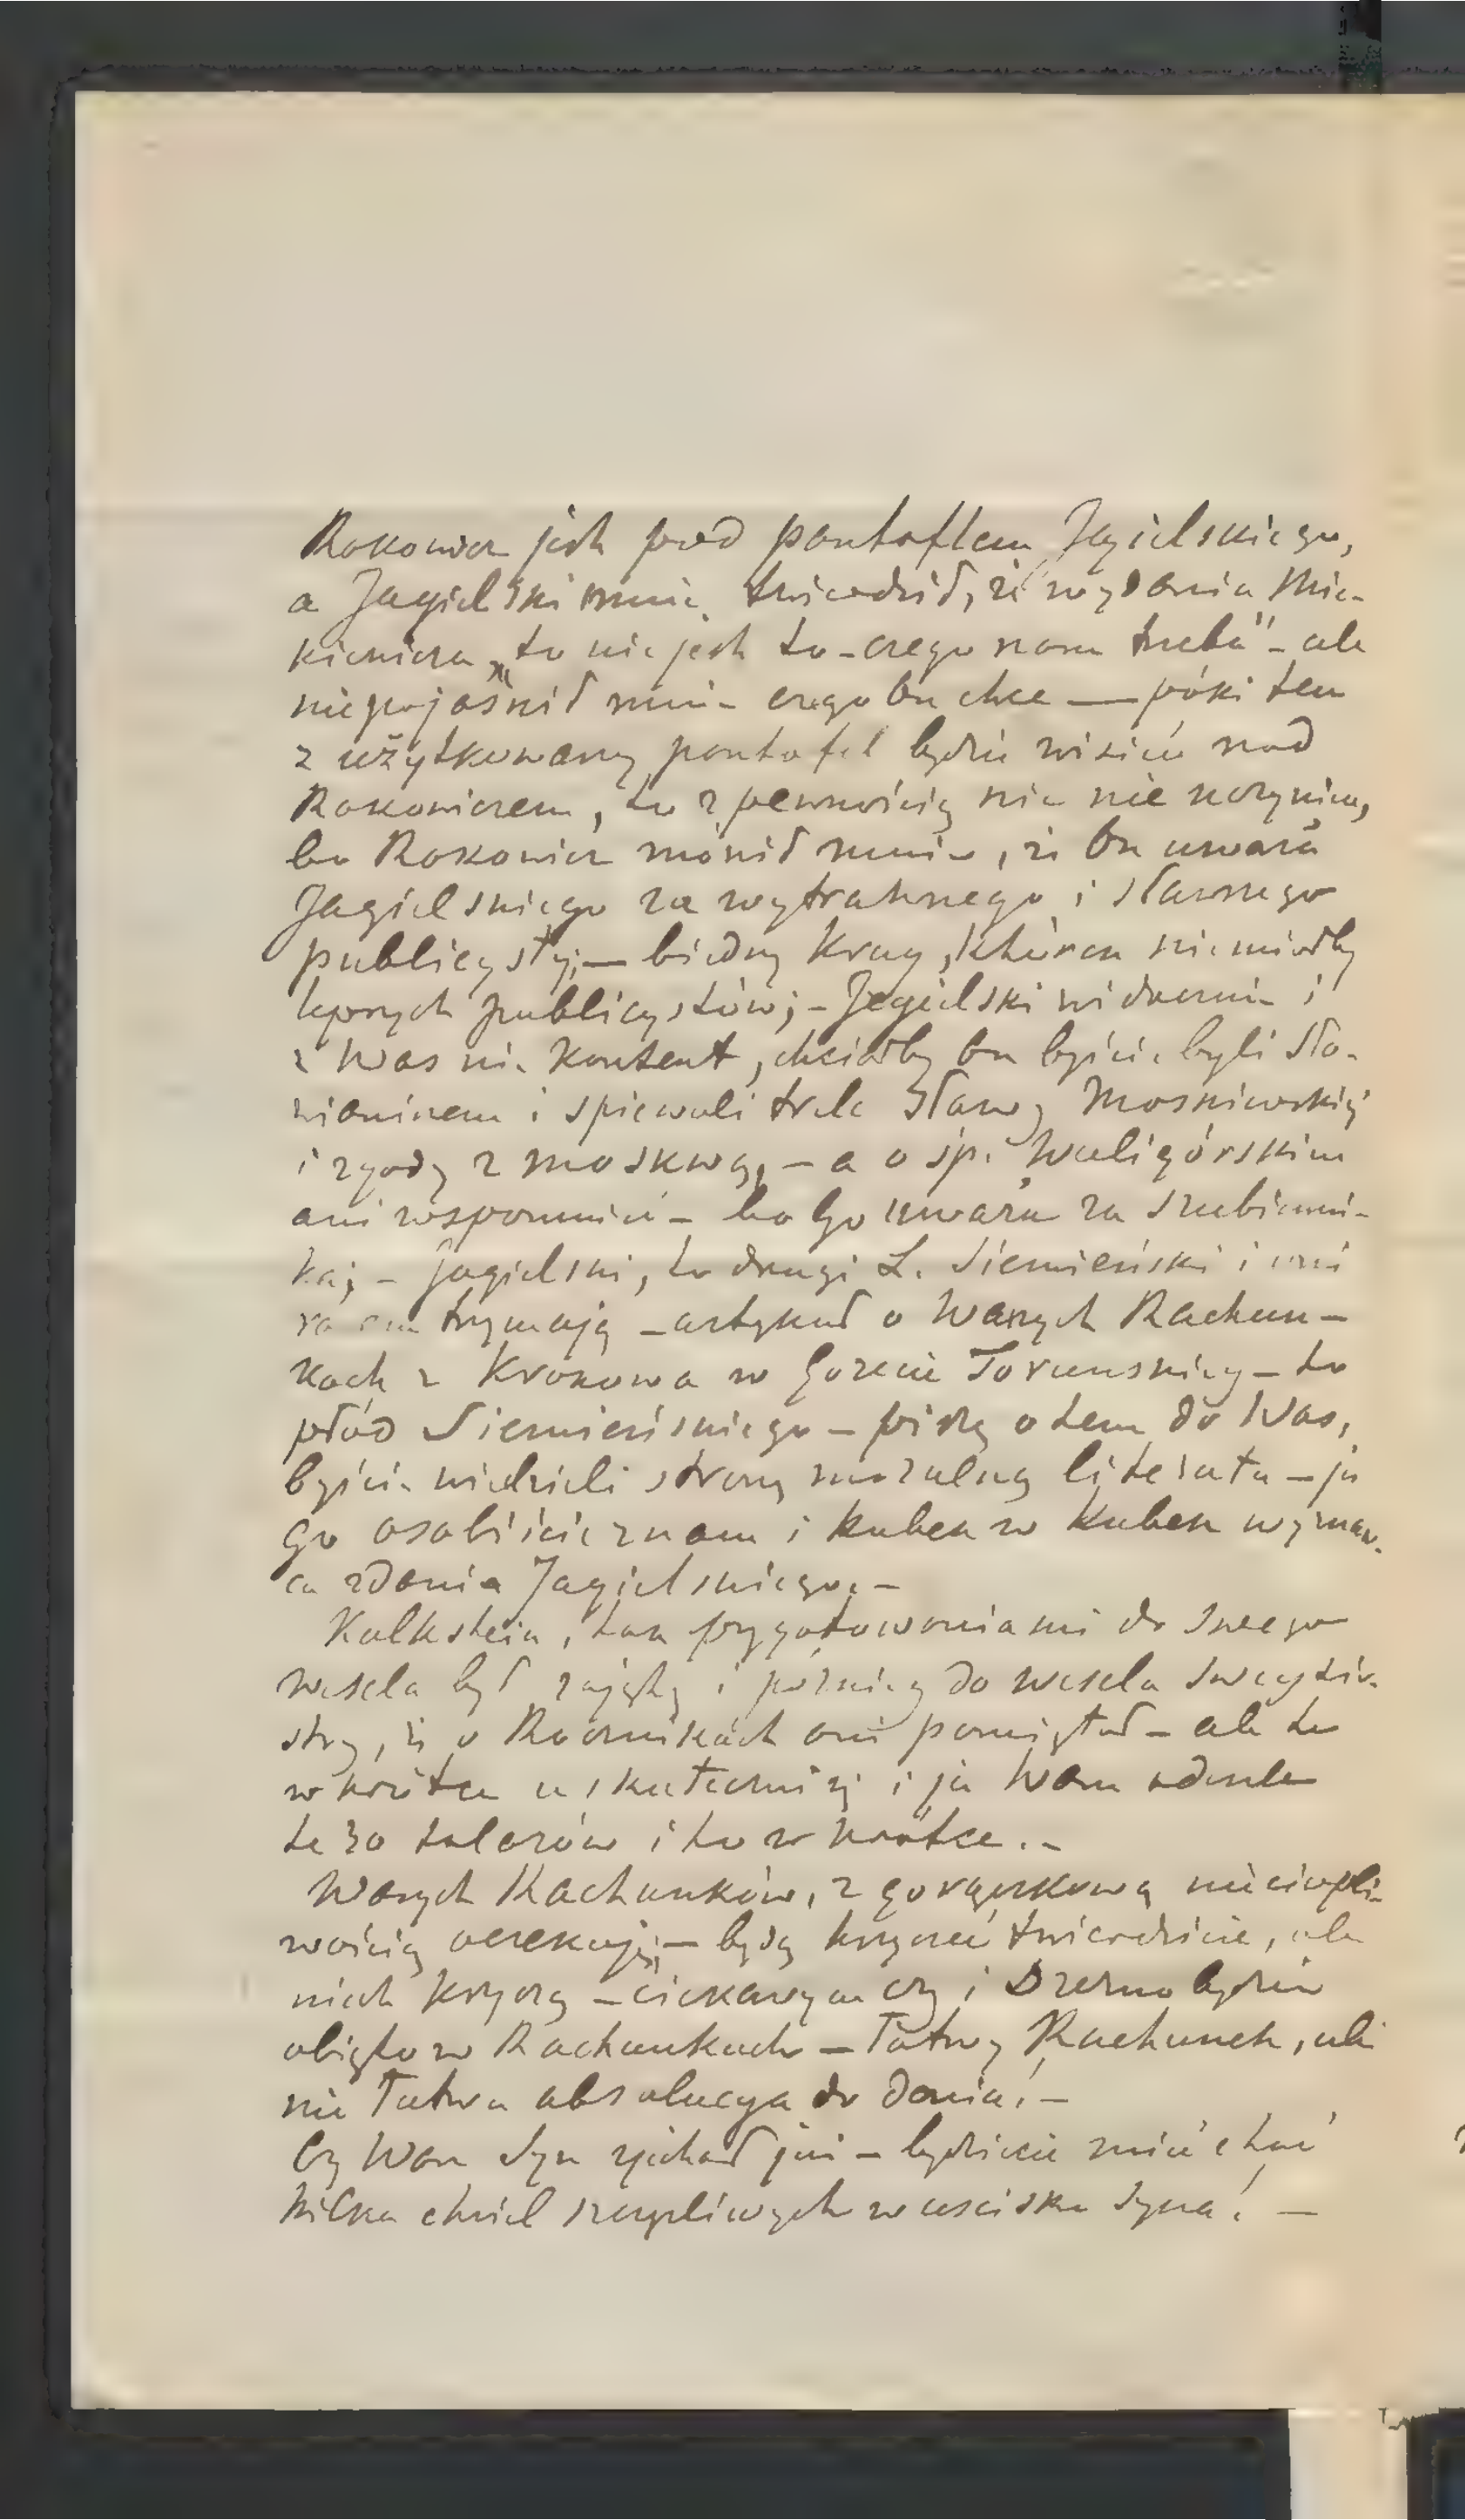 Rakowicz jest pod pantoflem Jagielskiego,
a Jagielski mnie twierdził, że wydania Mic-
kiewicza „to nie jest to - czego nam trzeba" - ale
niepojaśnił mnie czego on chce — póki ten
zużytkowany pantofel będzie wisieć nad
Rakowiczem, to z pewnością nic nie uczynim,
bo Rakowicz mówił mnie, że on uważa
Jagielskiego za wytrawnego i sławnego
publicysty; — biedny Kraj, który niemiałby
lepszych publicystów; - Jagielski widocznie i
z Was nie kontent, chciałby on byście byli Sło-
wianinem i śpiewali trele Sławy Moskiewskiej
i zgody z Moskwą, - a o śp. Waligórskim
ani wspomnieć - bo Go uważa za szubieni-
ka; - Jagielski, to drugi L. Siemieński i oni
razem trzymają - artykuł o Waszych Rachun-
kach z Krakowa w Gazecie Toruńskiej - to
płód Siemieńskiego - piszę o tem do Was,
byście widzieli stronę moralną literata - ja
go osobiście znam i kubek w kubek wyzna-
ca zdania Jagielskiego. -
Kalkstein, tak przygotowaniami do swego
wesela był zajęty i później do wesela swej sio-
stry, że o Rocznikach ani pamiętał - ale to
wkrótce uskuteczni się i ja Wam odeszle
te 30 talarów i to wkrótce. -
Waszych Rachunków, z gorączkową niecierpli-
wością oczekuję; - będą krzyczeć twierdzicie, ale
niech krzyczą - ciekawym czy i Drezno będzie
objęto w Rachunkach - łatwy Rachunek, ale
nie łatwa absolucya do dania! -
Czy Wam Syn zjechał już - będziecie mieć choć
kilka chwil szczęśliwych w uścisku Syna! —